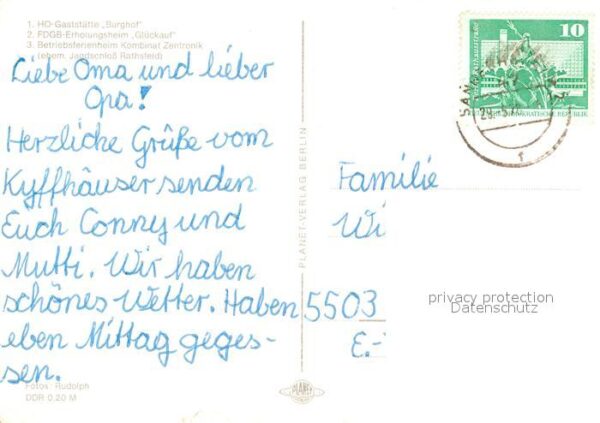 1. HO-Gaststätte „Burghof"
2. FDGB-Erholungsheim „Glückauf"
3. Betriebsferienheim Kombinat Zentronik
(ehem. Jagdschloß Rathsfeld)
Liebe Oma und lieber
Opa!
Herzliche Grüße vom
Kyffhäuser senden
Euch Conny und
Mutti. Wir haben
schönes Wetter. Haben
eben Mittag geges-
sen.
Fotos: Rudolph
DDR 0,20 M
PLANET-VERLAG BERLIN
PLANET
10
DEMOKRATISCHE REPUBLIK
Familie
Wi
5503
E.-
privacy protection
Datenschutz